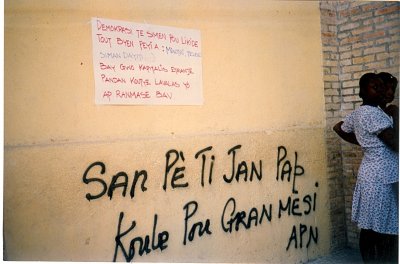 DEMOKRASI TE SIMEN POU LIKIDE
TOUT BYEN PEYI A : MINOTRI, TELECO
SIMAN DAYITI...!
BAY GWO KAPITALIS ETRANJE
PANDAN KOUTYE LAVALAS YO
AP RANMASE BAV
SAN PÈ TI JAN PAP
Koule Pou GRANMESI
APN